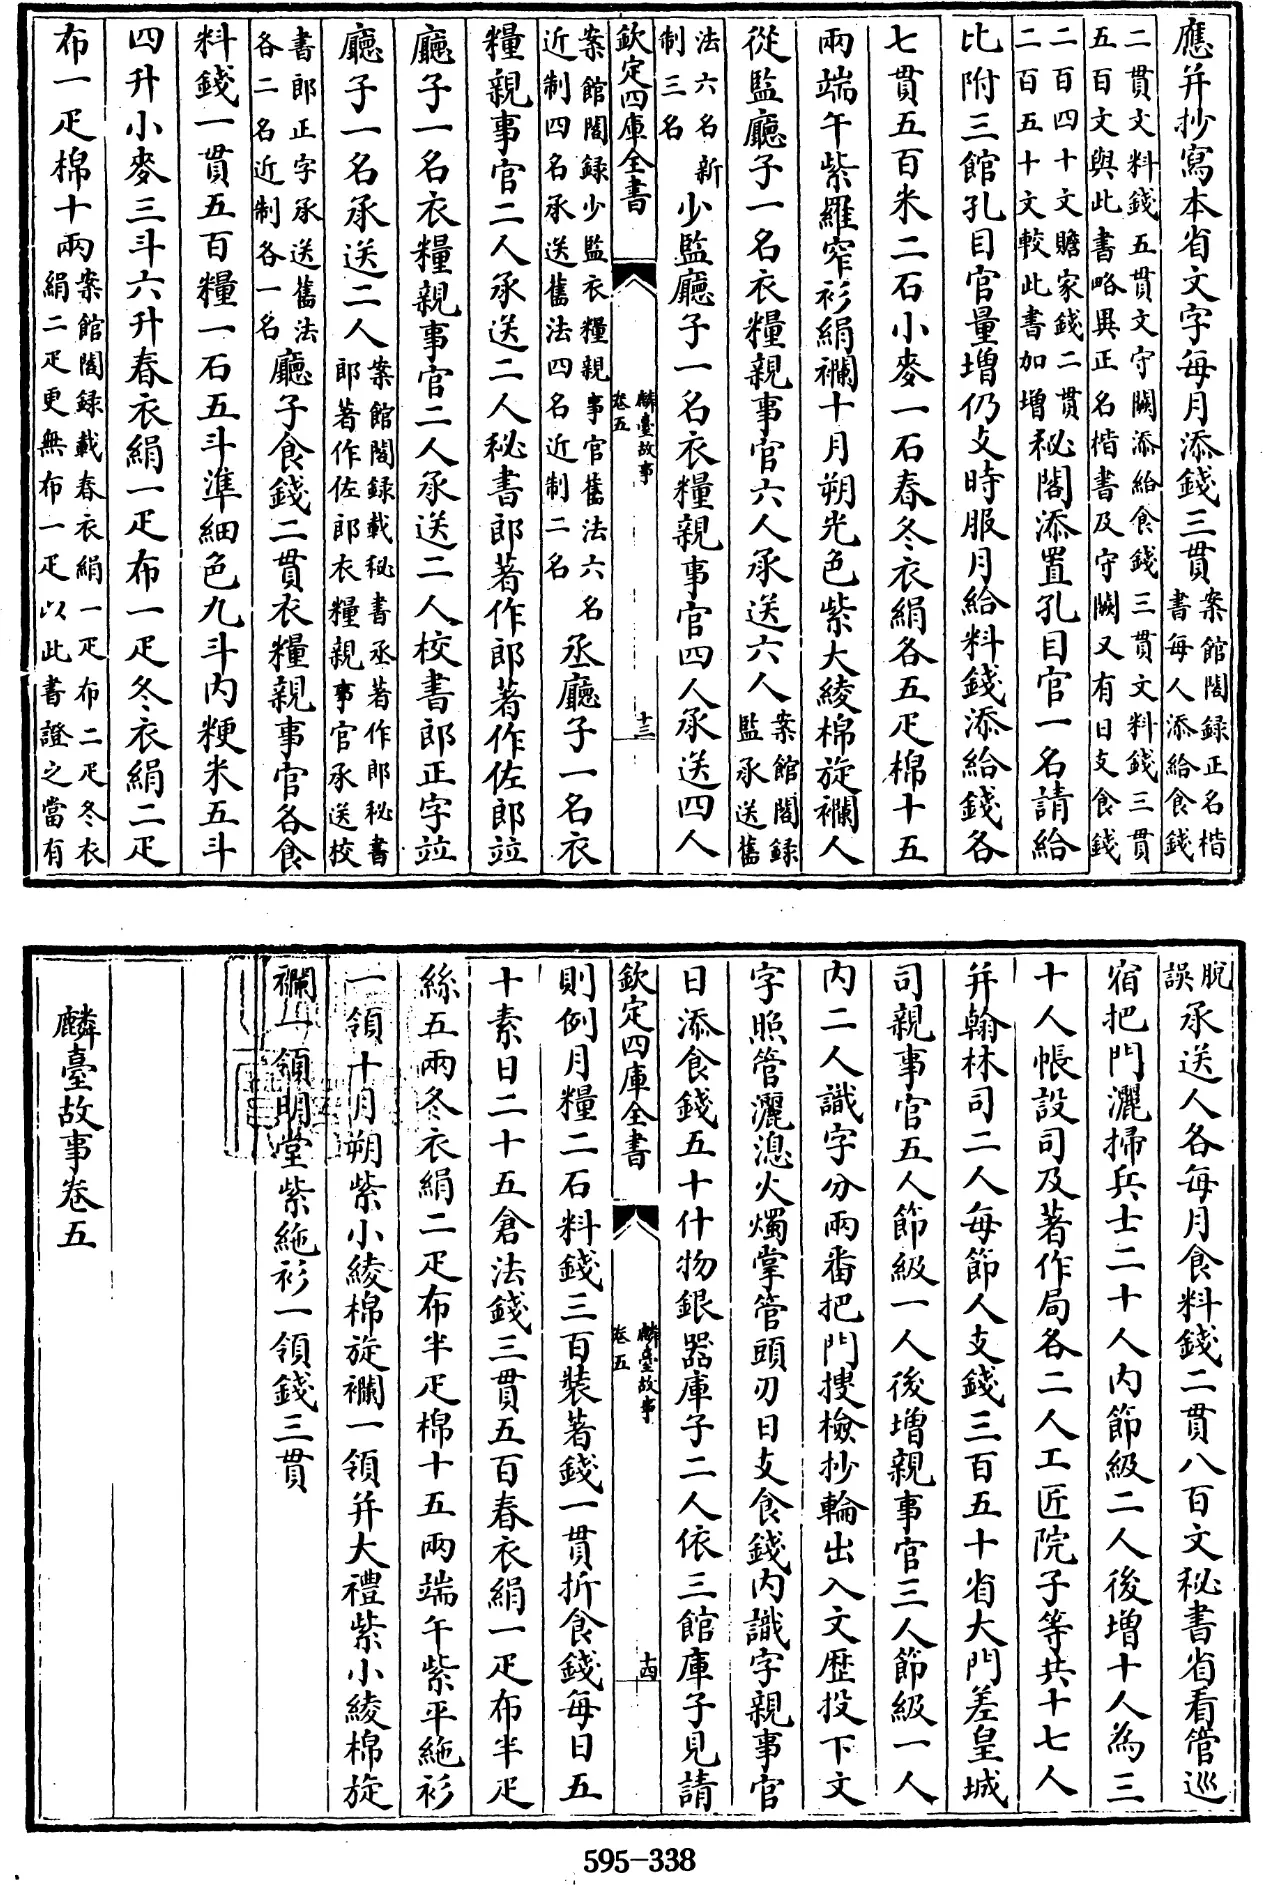 應并抄寫本省文字每月添錢三貫案館閣録正名楷書每人添給食錢
二貫文料錢五貫文守闕添給食錢三貫文料錢三貫五百文與此書略異正名楷書及守闕又有日支食錢
二百四十文贍家錢二貫二百五十文較此書加增秘閣添置孔目官一名請給
比附三館孔目官量增仍支時服月給料錢添給錢各
七貫五百米二石小麥一石春冬衣絹各五疋棉十五
兩端午紫羅窄衫絹襴十月朔光色紫大綾棉旋襴人
從監廳子一名衣糧親事官六人承送六人案館閣録監承送舊
法六名新制三名少監廳子一名衣糧親事官四人承送四人
欽定四庫全書
麟臺故事
卷五
十三
案館閣録少監衣糧親事官舊法六名近制四名承送舊法四名近制二名丞廳子一名衣
糧親事官二人承送二人秘書郎著作郎著作佐郎並
廳子一名衣糧親事官二人承送二人校書郎正字並
廳子一名承送二人案館閣録載秘書丞著作郎秘書郎著作佐郎衣糧親事官承送校
書郎正字承送舊法各二名近制各一名廳子食錢二貫衣糧親事官各食
料錢一貫五百糧一石五斗準細色九斗内粳米五斗
四升小麥三斗六升春衣絹一疋布一疋冬衣絹二疋
布一疋棉十兩案館閣録載春衣絹一疋布二疋冬衣絹二疋更無布一疋以此書證之當有
脱誤承送人各每月食料錢二貫八百文秘書省看管巡
宿把門灑掃兵士二十人内節級二人後增十人為三
十人帳設司及著作局各二人工匠院子等共十七人
并翰林司二人每節人支錢三百五十省大門差皇城
司親事官五人節級一人後增親事官三人節級一人
内二人識字分兩番把門搜檢抄輪出入文歷投下文
字照管灑熄火燭掌管頭刃日支食錢内識字親事官
日添食錢五十什物銀器庫子二人依三館庫子見請
欽定四庫全書
麟臺故事
卷五
十四
則例月糧二石料錢三百裝著錢一貫折食錢每日五
十素日二十五倉法錢三貫五百春衣絹一疋布半疋
絲五兩冬衣絹二疋布半疋棉十五兩端午紫平絁衫
一領十月朔紫小綾棉旋襴一領并大禮紫小綾棉旋
襴一領明堂紫絁衫一領錢三貫
麟臺故事卷五
595-338